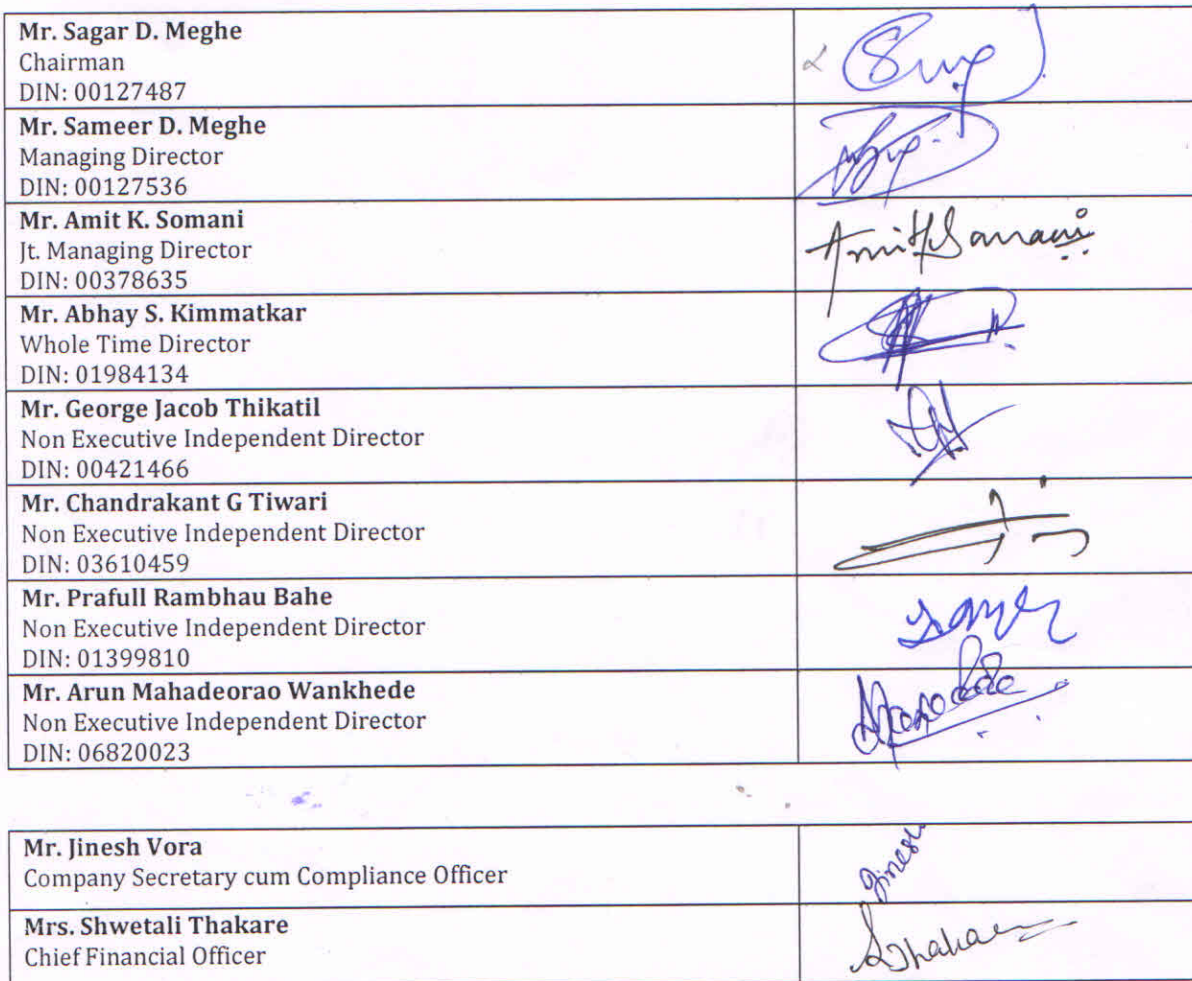 Mr. Sagar D. Meghe
Chairman
DIN: 00127487
Mr. Sameer D. Meghe
Managing Director
DIN: 00127536
Mr. Amit K. Somani
Jt. Managing Director
DIN: 00378635
Mr. Abhay S. Kimmatkar
Whole Time Director
DIN: 01984134
Mr. George Jacob Thikatil
Non Executive Independent Director
DIN: 00421466
Mr. Chandrakant G Tiwari
Non Executive Independent Director
DIN: 03610459
Mr. Prafull Rambhau Bahe
Non Executive Independent Director
DIN: 01399810
Mr. Arun Mahadeorao Wankhede
Non Executive Independent Director
DIN: 06820023
Mr. Jinesh Vora
Company Secretary cum Compliance Officer
Jinesh
Mrs. Shwetali Thakare
Chief Financial Officer